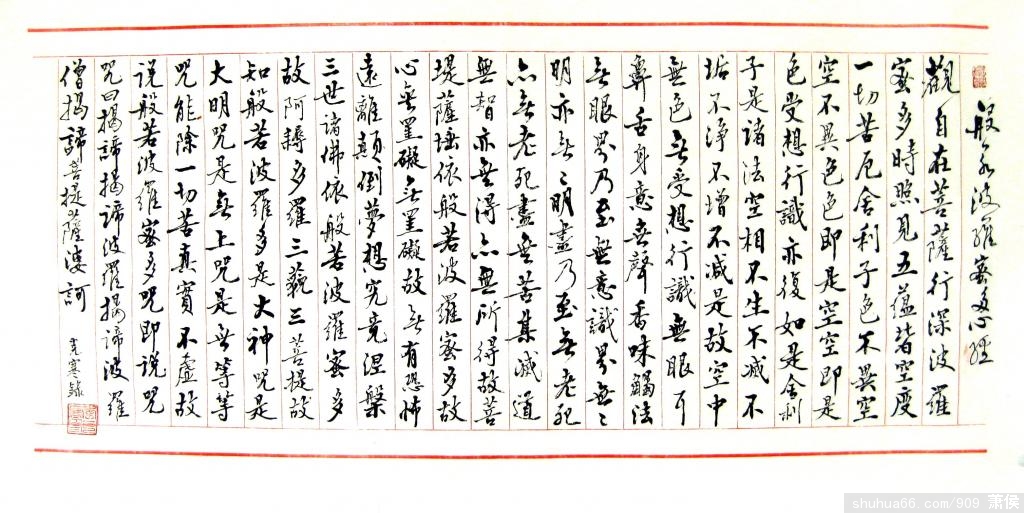 般若波羅蜜多心經
觀自在菩薩行深波羅
蜜多時照見五蘊皆空度
一切苦厄舍利子色不異空
空不異色色即是空空即是
色受想行識亦復如是舍利
子是諸法空相不生不滅不
垢不淨不增不減是故空中
無色無受想行識無眼耳
鼻舌身意無聲香味觸法
無眼界乃至無意識界無々
明亦無々明盡乃至無老死
亦無老死盡無苦集滅道
無智亦無得亦無所得故菩
堤薩埵依般若波羅蜜多故
心無罣礙無罣礙故無有恐怖
遠離顛倒夢想究竟涅槃
三世諸佛依般若波羅蜜多
故阿耨多羅三藐三菩提故
知般若波羅多是大神咒是
大明咒是無上咒是無等等
咒能除一切苦真實不虛故
說般若波羅蜜多咒即說咒
咒曰揭諦揭諦波羅揭諦波羅
僧揭諦菩提薩婆訶
shuhua66.com/909 萧侯